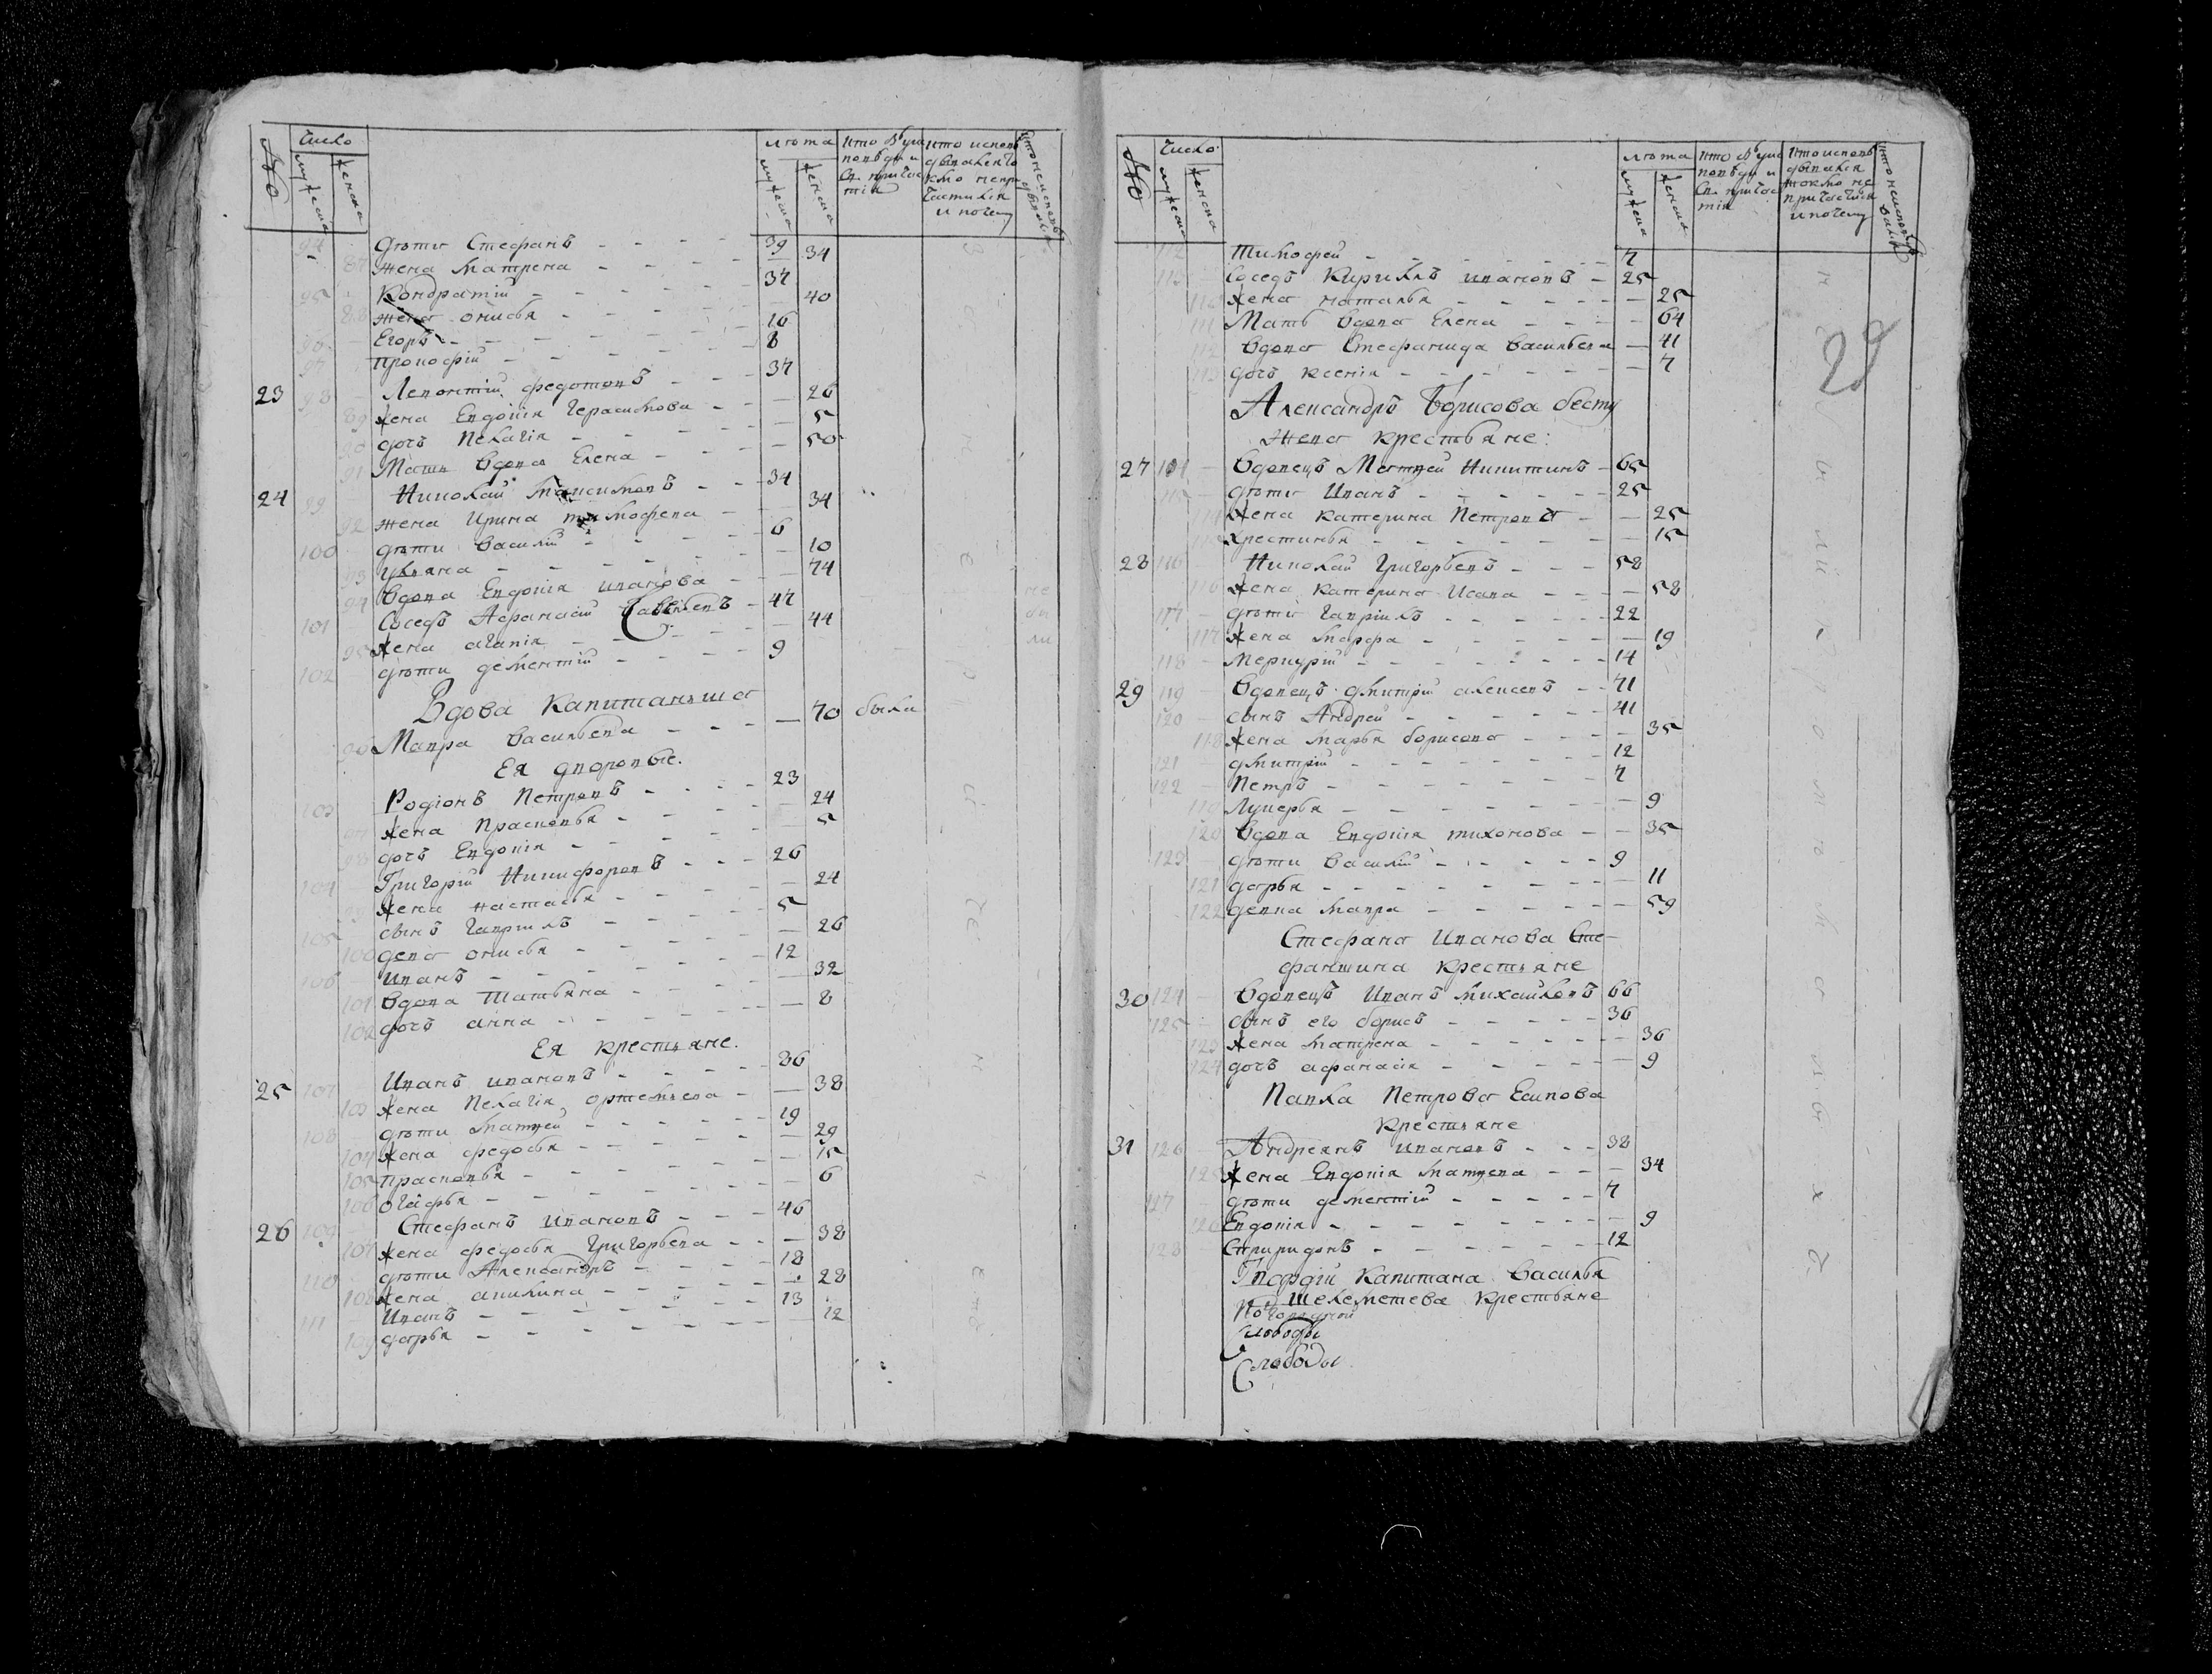 № Число лѣта
мужеска женска мужеска женска
94 дѣти Стефанъ 39
87 жена Матрена 34
95 Кондратій 37
88 жена Ониcья 40
96 Егоръ 16
97 Прокофій 8
23 98 Леонтій Федотовъ 37
89 жена Евдокія Герасимова 26
90 дочь Пелагія 5
91 Мать вдова Елена 50
24 99 Николай Максимовъ 34
92 жена Ирина Тимофеева 34
100 дѣти Василій 6
93 Ульяна 10
94 Вдова Евдокія Иванова 74
101 Соседъ Афанасій Савельевъ 47
95 жена Агапія 44
102 дѣти Дементій 9
Вдова Капитанша
96 Мавра Васильева 70 была
Ея дворовые.
103 Родіонъ Петровъ 23
97 жена Прасковья 24
98 дочь Евдокія 5
104 Григорій Никифоровъ 26
99 жена Настасья 24
105 сынъ Гаврилъ 5
100 девка Онисья 26
106 Иванъ 12
101 Вдова Татьяна 32
102 дочь Анна 8
Ея крестьяне.
25 107 Иванъ Ивановъ 36
103 жена Пелагія Ортемьева 38
108 дѣти Матвей 19
104 жена Федосья 29
105 Прасковья 15
106 Огафья 6
26 109 Стефанъ Ивановъ 46
107 жена Федосья Григорьева 38
110 дѣти Александръ 18
108 жена Акилина 28
111 Иванъ 13
109 Дарья 12
№ Число лѣта
мужеска женска мужеска женска
112 Тимофей 7
113 Соседъ Кирилъ Ивановъ 25
110 жена Наталья 25
111 Мать вдова Елена 64
112 Вдова Стефанида Васильева 41
113 дочь Ксенія 7
Александръ Борисова бесту
жева крестьяне:
27 114 Вдовецъ Матвей Никитинъ 65
115 дѣти Иванъ 25
114 жена Катерина Петрова 25
115 Хрестинья 15
28 116 Николай Григорьевъ 58
116 жена Катерина Исаева 58
117 дѣти Гаврилъ 22
117 жена Марфа 19
118 Меркурій 14
29 119 Вдовецъ Дмитрій Алексеевъ 71
120 сынъ Андрей 41
118 жена Марья Борисова 35
121 Дмитрій 12
122 Петръ 7
119 Лукерья 9
120 Вдова Евдокія Тихонова 35
123 дѣти Василій 9
121 Дарья 11
122 девка Мавра 59
Стефана Иванова Сте-
фантина крестьяне
30 124 Вдовецъ Иванъ Михайловъ 66
125 сынъ его Борисъ 36
123 жена Матрена 36
124 дочь Афанасія 9
Павла Петрова Есипова
крестьяне
31 126 Андреянъ Ивановъ 38
125 жена Евдокія Матвеева 34
127 дѣти Дементій 7
126 Евдокія 9
128 Спиридонъ 12
Капитана Василья
Шелеметева крестьяне
слободы
Слободы